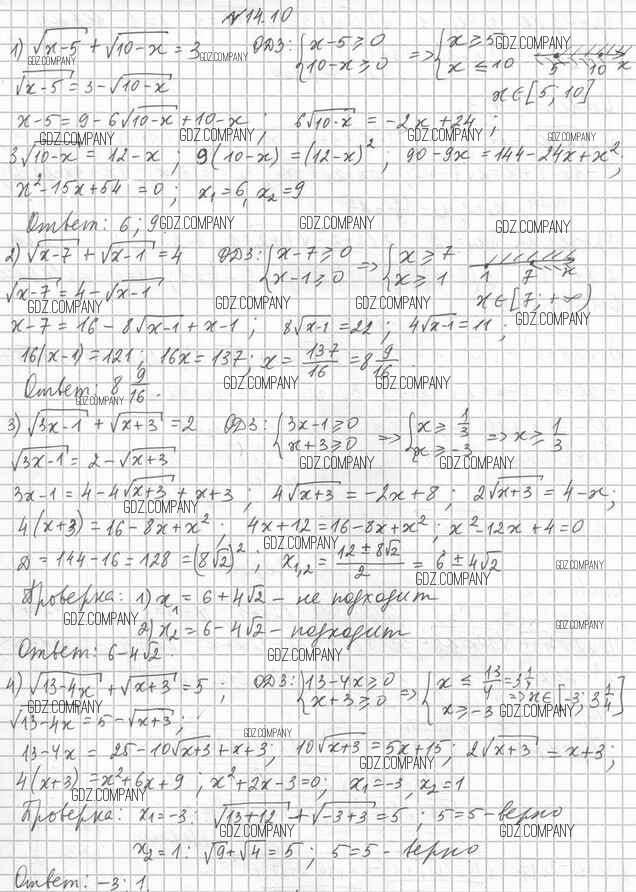 №14.10
1) √(x-5) + √(10-x) = 3 ОДЗ: { x-5≥0 10-x≥0 => { x≥5 x≤10 5 10 x
√(x-5) = 3-√(10-x) x∈[5; 10]
x-5 = 9-6√(10-x)+10-x; 6√(10-x) = -2x+24;
3√(10-x) = 12-x; 9(10-x) = (12-x)²; 90-9x=144-24x+x²;
x²-15x+54=0; x₁=6, x₂=9
Ответ: 6; 9.
2) √(x-7) + √(x-1) = 4 ОДЗ: { x-7≥0 x-1≥0 => { x≥7 x≥1 1 7 x
√(x-7) = 4-√(x-1) x∈[7; +∞)
x-7 = 16-8√(x-1)+x-1; 8√(x-1)=22; 4√(x-1)=11;
16(x-1)=121; 16x=137; x=137/16=8 9/16.
Ответ: 8 9/16.
3) √(3x-1) + √(x+3) = 2 ОДЗ: { 3x-1≥0 x+3≥0 => { x≥1/3 x≥-3 => x≥1/3
√(3x-1) = 2-√(x+3)
3x-1=4-4√(x+3)+x+3; 4√(x+3) = -2x+8; 2√(x+3) = 4-x;
4(x+3)=16-8x+x²; 4x+12=16-8x+x²; x²-12x+4=0
D=144-16=128=(8√2)²; x₁,₂=(12±8√2)/2=6±4√2
Проверка: 1) x₁=6+4√2 - не подходит
2) x₂=6-4√2 - подходит
Ответ: 6-4√2.
4) √(13-4x) + √(x+3) = 5; ОДЗ: { 13-4x≥0 x+3≥0 => { x≤13/4=3 1/4 x≥-3 => x∈[-3; 3 1/4]
√(13-4x) = 5-√(x+3);
13-4x = 25-10√(x+3)+x+3; 10√(x+3)=5x+15; 2√(x+3) = x+3;
4(x+3)=x²+6x+9; x²+2x-3=0; x₁=-3, x₂=1
Проверка: x₁=-3: √(13+12) + √(-3+3) = 5; 5=5-верно
x₂=1: √9+√4=5; 5=5 - верно
Ответ: -3; 1.
GDZ.COMPANY